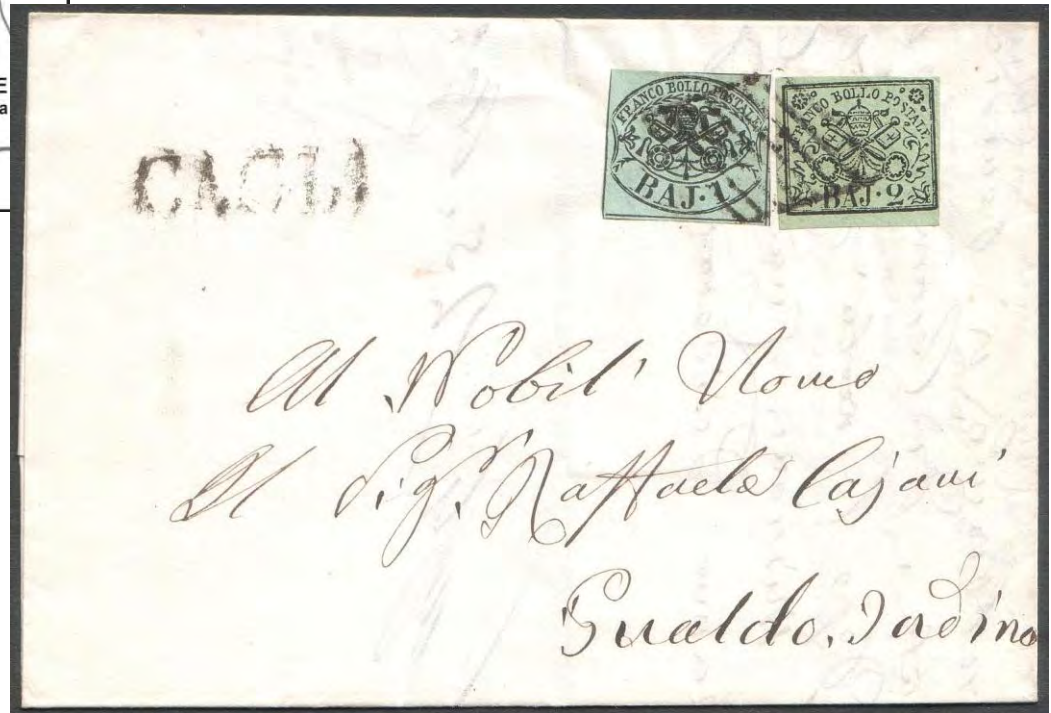 CAGLI
FRANCO BOLLO POSTALE
BAJ. 1.
FRANCO BOLLO POSTALE
BAJ. 2
Al Nobil' Uomo
Il Sig. Raffaele Cajani
Gualdo Tadino